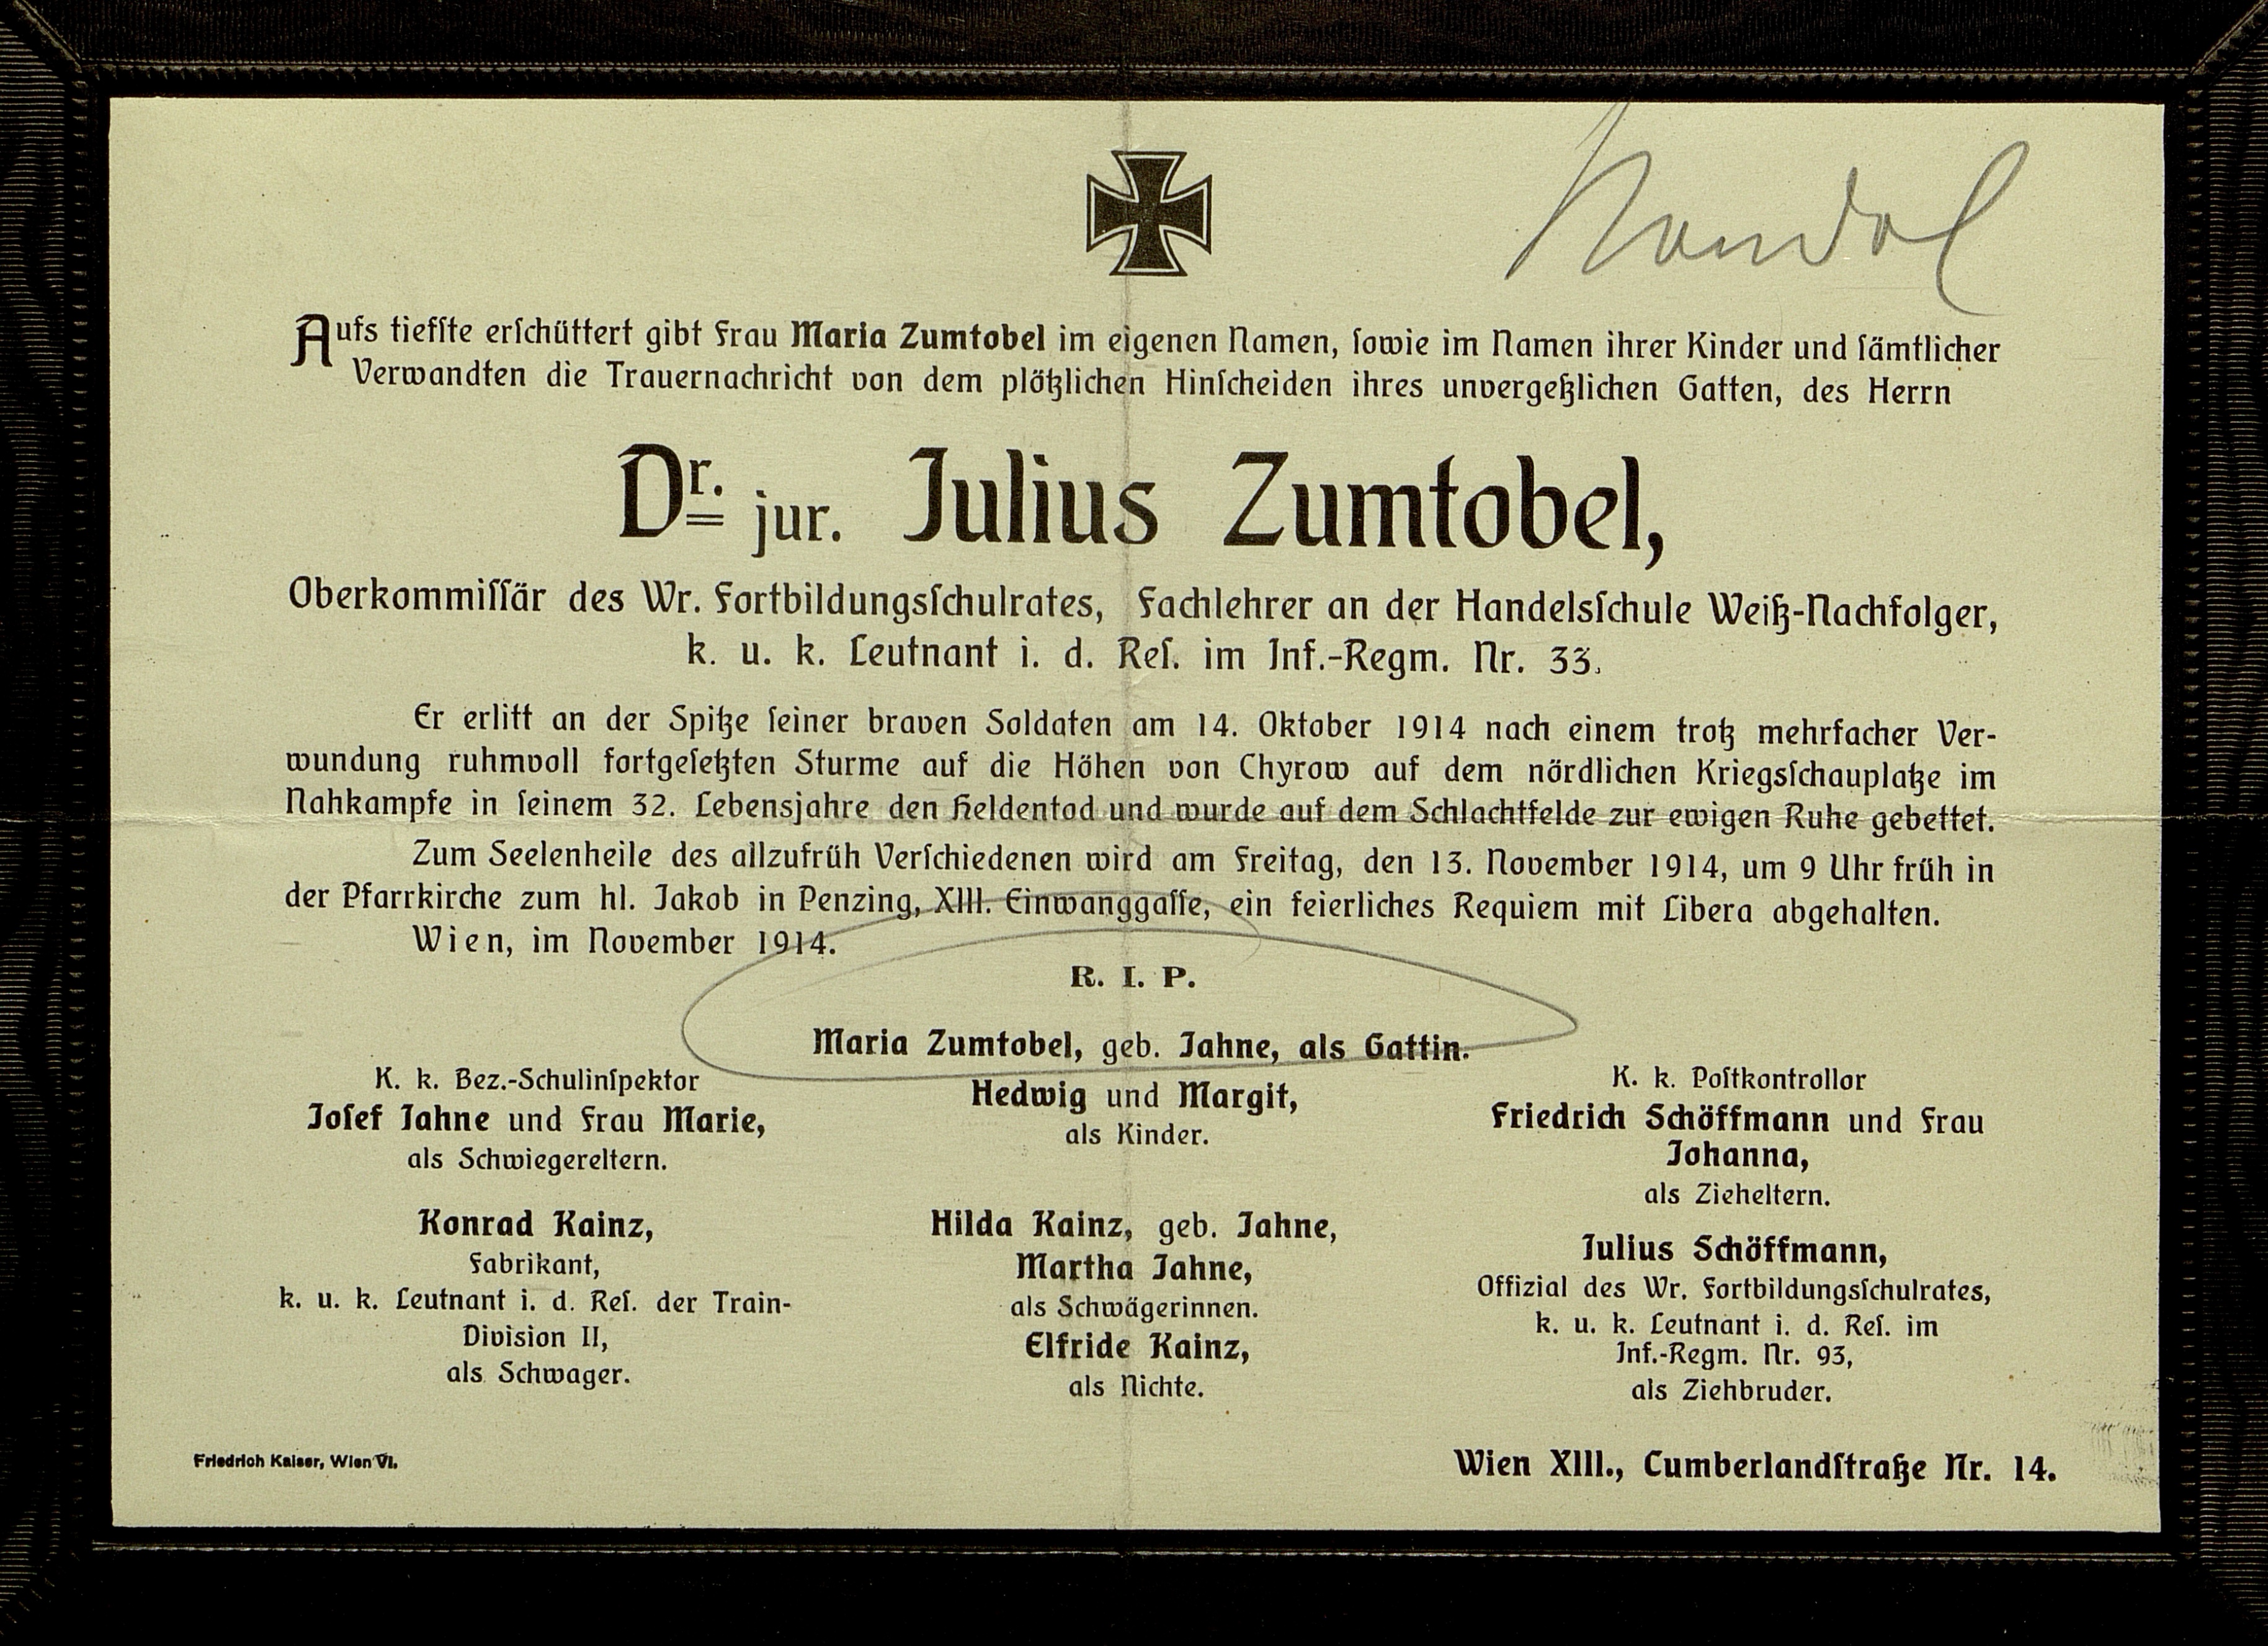 Aufs tiefſte erſchüttert gibt Frau Maria Zumtobel im eigenen Namen, ſowie im Namen ihrer Kinder und ſämtlicher
Verwandten die Trauernachricht von dem plötzlichen Hinſcheiden ihres unvergeßlichen Gatten, des Herrn
Dr. jur. Julius Zumtobel,
Oberkommiſſär des Wr. Fortbildungsſchulrates, Fachlehrer an der Handelsſchule Weiß-Nachfolger,
k. u. k. Leutnant i. d. Reſ. im Inf.-Regm. Nr. 33.
Er erlitt an der Spitze ſeiner braven Soldaten am 14. Oktober 1914 nach einem trotz mehrfacher Ver-
wundung ruhmvoll fortgeſetzten Sturme auf die Höhen von Chyrow auf dem nördlichen Kriegsſchauplatze im
Nahkampfe in ſeinem 32. Lebensjahre den Heldentod und wurde auf dem Schlachtfelde zur ewigen Ruhe gebettet.
Zum Seelenheile des allzufrüh Verſchiedenen wird am Freitag, den 13. November 1914, um 9 Uhr früh in
der Pfarrkirche zum hl. Jakob in Penzing, XIII. Einwanggaſſe, ein feierliches Requiem mit Libera abgehalten.
Wien, im November 1914.
R. I. P.
Maria Zumtobel, geb. Jahne, als Gattin.
K. k. Bez.-Schulinſpektor
Joſef Jahne und Frau Marie,
als Schwiegereltern.
Hedwig und Margit,
als Kinder.
K. k. Poſtkontrollor
Friedrich Schöffmann und Frau
Johanna,
als Zieheltern.
Konrad Kainz,
Fabrikant,
k. u. k. Leutnant i. d. Reſ. der Train-
Division II,
als Schwager.
Hilda Kainz, geb. Jahne,
Martha Jahne,
als Schwägerinnen.
Elfride Kainz,
als Nichte.
Julius Schöffmann,
Offizial des Wr. Fortbildungsſchulrates,
k. u. k. Leutnant i. d. Reſ. im
Inf.-Regm. Nr. 93,
als Ziehbruder.
Friedrich Kaiser, Wien VI.
Wien XIII., Cumberlandſtraße Nr. 14.